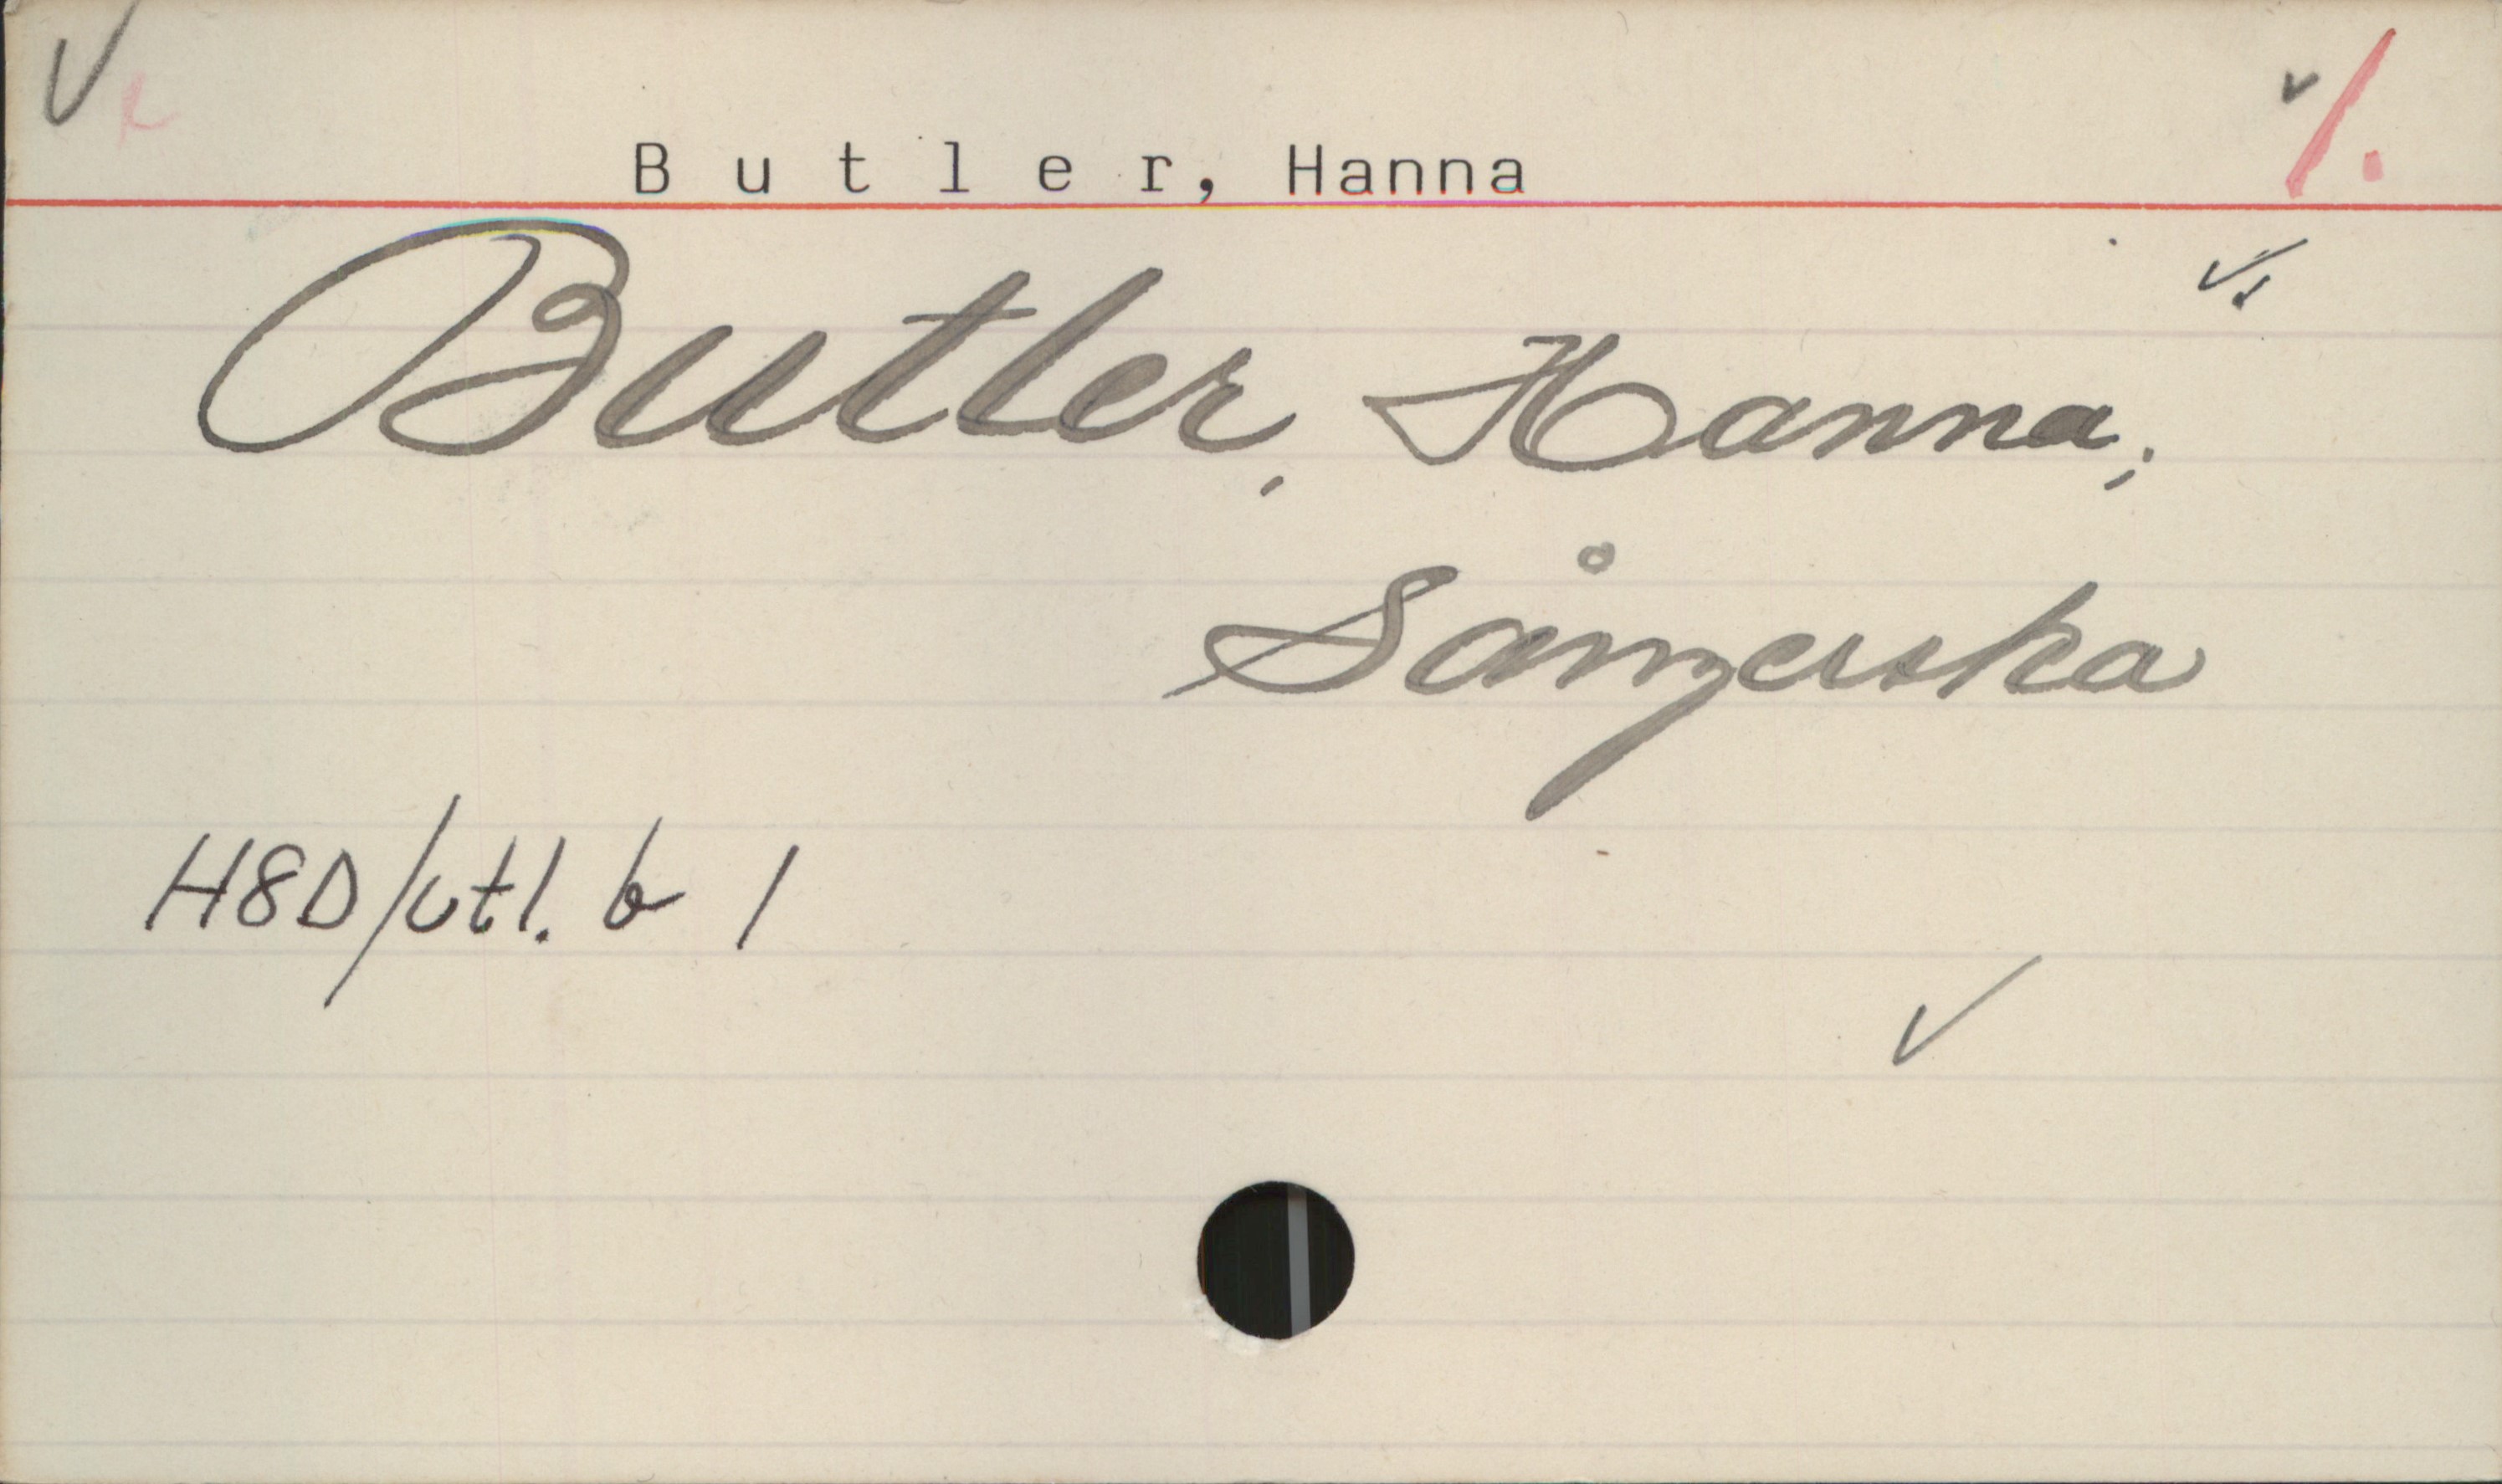 B u t l e r, Hanna
Butler, Hanna;
Sångerska
H8D/utl. b 1